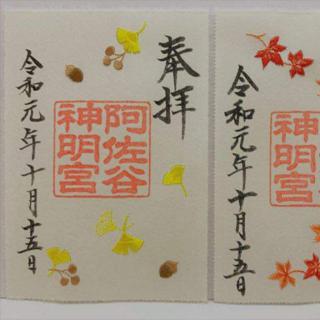 奉拝
阿佐谷
神明宮
令和元年十月十五日
神明宮
令和元年十月十五日